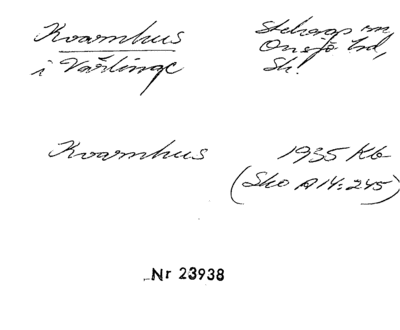 Kvarnhus
i Vätlinge
Stehags sn
Onsjö hd,
Sk.
Kvarnhus
1935 Kb
(Sko A 14:245)
Nr 23938